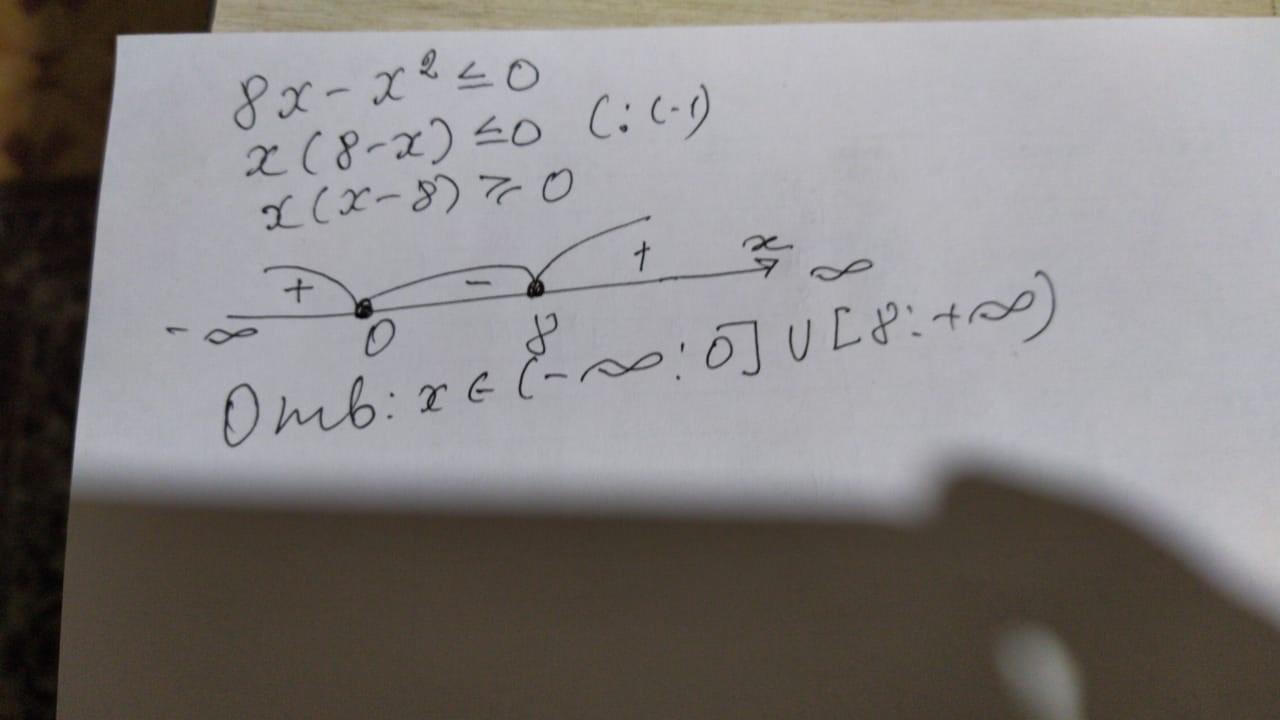 8x - x² ≤ 0
x (8-x) ≤ 0 (: (-1)
x (x-8) ≥ 0
+ - + x
-∞ 0 8 ∞
Отв: x ∈ (-∞ : 0] ∪ [8 : +∞)